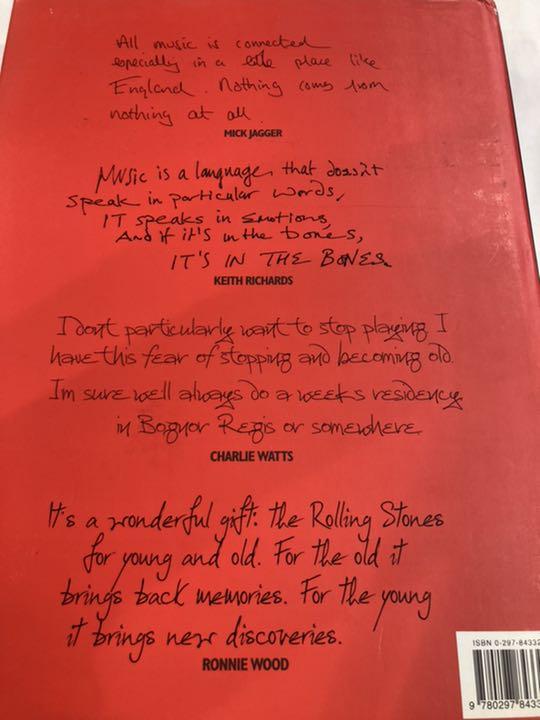 All music is connected
especially in a little place like
England. Nothing comes from
nothing at all
MICK JAGGER
Music is a language, that doesn't
speak in particular words,
IT speaks in Emotions,
And if it's in the bones,
IT'S IN THE BONES.
KEITH RICHARDS
I dont particularly want to stop playing I
have this fear of stopping and becoming old.
Im sure well always do a weeks residency
in Bognor Regis or somewhere
CHARLIE WATTS
It's a wonderful gift: the Rolling Stones
for young and old. For the old it
brings back memories. For the young
it brings new discoveries.
RONNIE WOOD
ISBN 0-297-84332
9 780297 8433